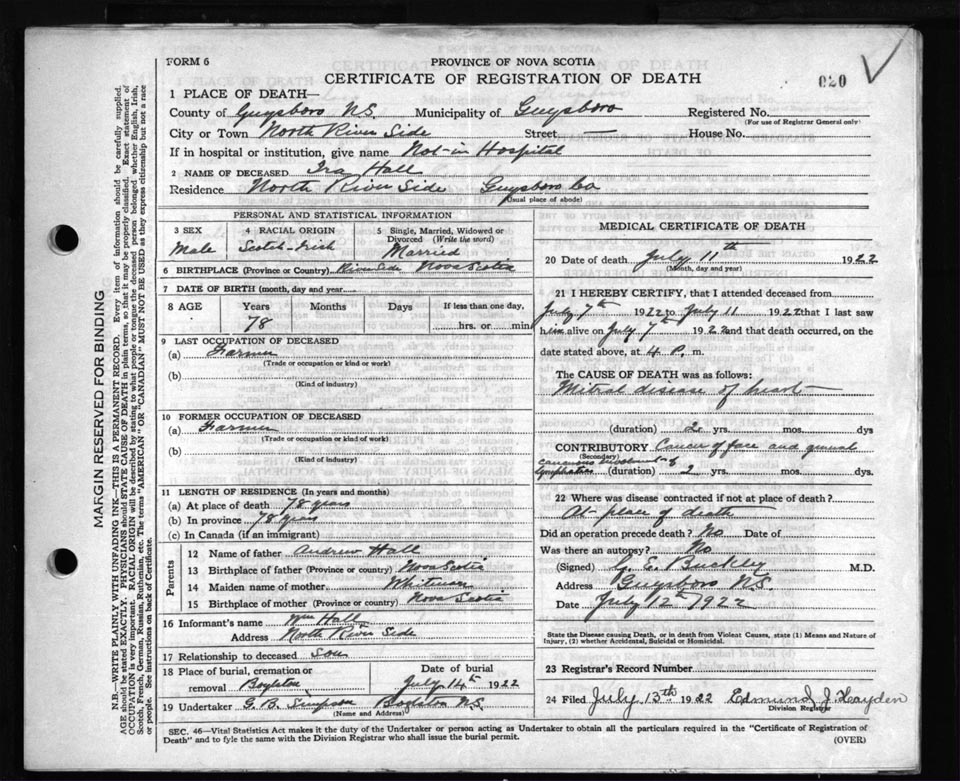 FORM 6
PROVINCE OF NOVA SCOTIA
CERTIFICATE OF REGISTRATION OF DEATH
020
1 PLACE OF DEATH—
County of Guysboro N.S. Municipality of Guysboro Registered No.
(For use of Registrar General only)
City or Town North River Side Street — House No.
If in hospital or institution, give name Not in Hospital
2 NAME OF DECEASED Ira Hall
Residence North River Side Guysboro Co
(Usual place of abode)
PERSONAL AND STATISTICAL INFORMATION
3 SEX
Male
4 RACIAL ORIGIN
Scotch-Irish
5 Single, Married, Widowed or Divorced (Write the word)
Married
6 BIRTHPLACE (Province or Country) River Side Nova Scotia
7 DATE OF BIRTH (month, day and year)
8 AGE Years Months Days If less than one day,
78 hrs. or min
9 LAST OCCUPATION OF DECEASED
(a) Farmer
(Trade or occupation or kind of work)
(b)
(Kind of industry)
10 FORMER OCCUPATION OF DECEASED
(a) Farmer
(Trade or occupation or kind of work)
(b)
(Kind of industry)
11 LENGTH OF RESIDENCE (In years and months)
(a) At place of death 78 years
(b) In province 78 years
(c) In Canada (if an immigrant)
Parents
12 Name of father Andrew Hall
13 Birthplace of father (Province or country) Nova Scotia
14 Maiden name of mother Whitman
15 Birthplace of mother (Province or country) Nova Scotia
16 Informant's name Wm Hall
Address North River Side
17 Relationship to deceased Son
18 Place of burial, cremation or removal Boylston
Date of burial July 14th 1922
19 Undertaker G. B. Simpson Boylston N.S.
(Name and Address)
MEDICAL CERTIFICATE OF DEATH
20 Date of death July 11th 1922
(Month, day and year)
21 I HEREBY CERTIFY, that I attended deceased from
July 7th 1922 to July 11 1922 that I last saw
him alive on July 7th 1922 and that death occurred, on the
date stated above, at 4 P. m.
The CAUSE OF DEATH was as follows:
Mitral disease of heart
(duration) 2 yrs. mos. dys
CONTRIBUTORY Cancer of face and general
(Secondary)
cancerous involment of
lymphatics (duration) 2 yrs. mos. dys.
22 Where was disease contracted if not at place of death?
At place of death
Did an operation precede death? No Date of
Was there an autopsy? No
(Signed) G. E. Buckley M.D.
Address Guysboro N.S.
Date July 12th 1922
State the Disease causing Death, or in death from Violent Causes, state (1) Means and Nature of
Injury, (2) whether Accidental, Suicidal or Homicidal.
23 Registrar's Record Number
24 Filed July 13th 1922 Edmund J Hayden
Division Registrar
SEC. 46—Vital Statistics Act makes it the duty of the Undertaker or person acting as Undertaker to obtain all the particulars required in the "Certificate of Registration of
Death" and to fyle the same with the Division Registrar who shall issue the burial permit.
(OVER)
MARGIN RESERVED FOR BINDING
N.B.—WRITE PLAINLY WITH UNFADING INK—THIS IS A PERMANENT RECORD. Every item of information should be carefully supplied.
AGE should be stated EXACTLY. PHYSICIANS should STATE CAUSE OF DEATH in plain terms, so that it may be properly classified. Exact statement of
OCCUPATION is very important. RACIAL ORIGIN will be described by stating to what people or tongue the deceased person belonged whether English, Irish,
Scotch, French, German, Russian, Ruthenian, etc. The terms "AMERICAN" OR "CANADIAN" MUST NOT BE USED as they express citizenship but not a race
or people. See instructions on back of Certificate.